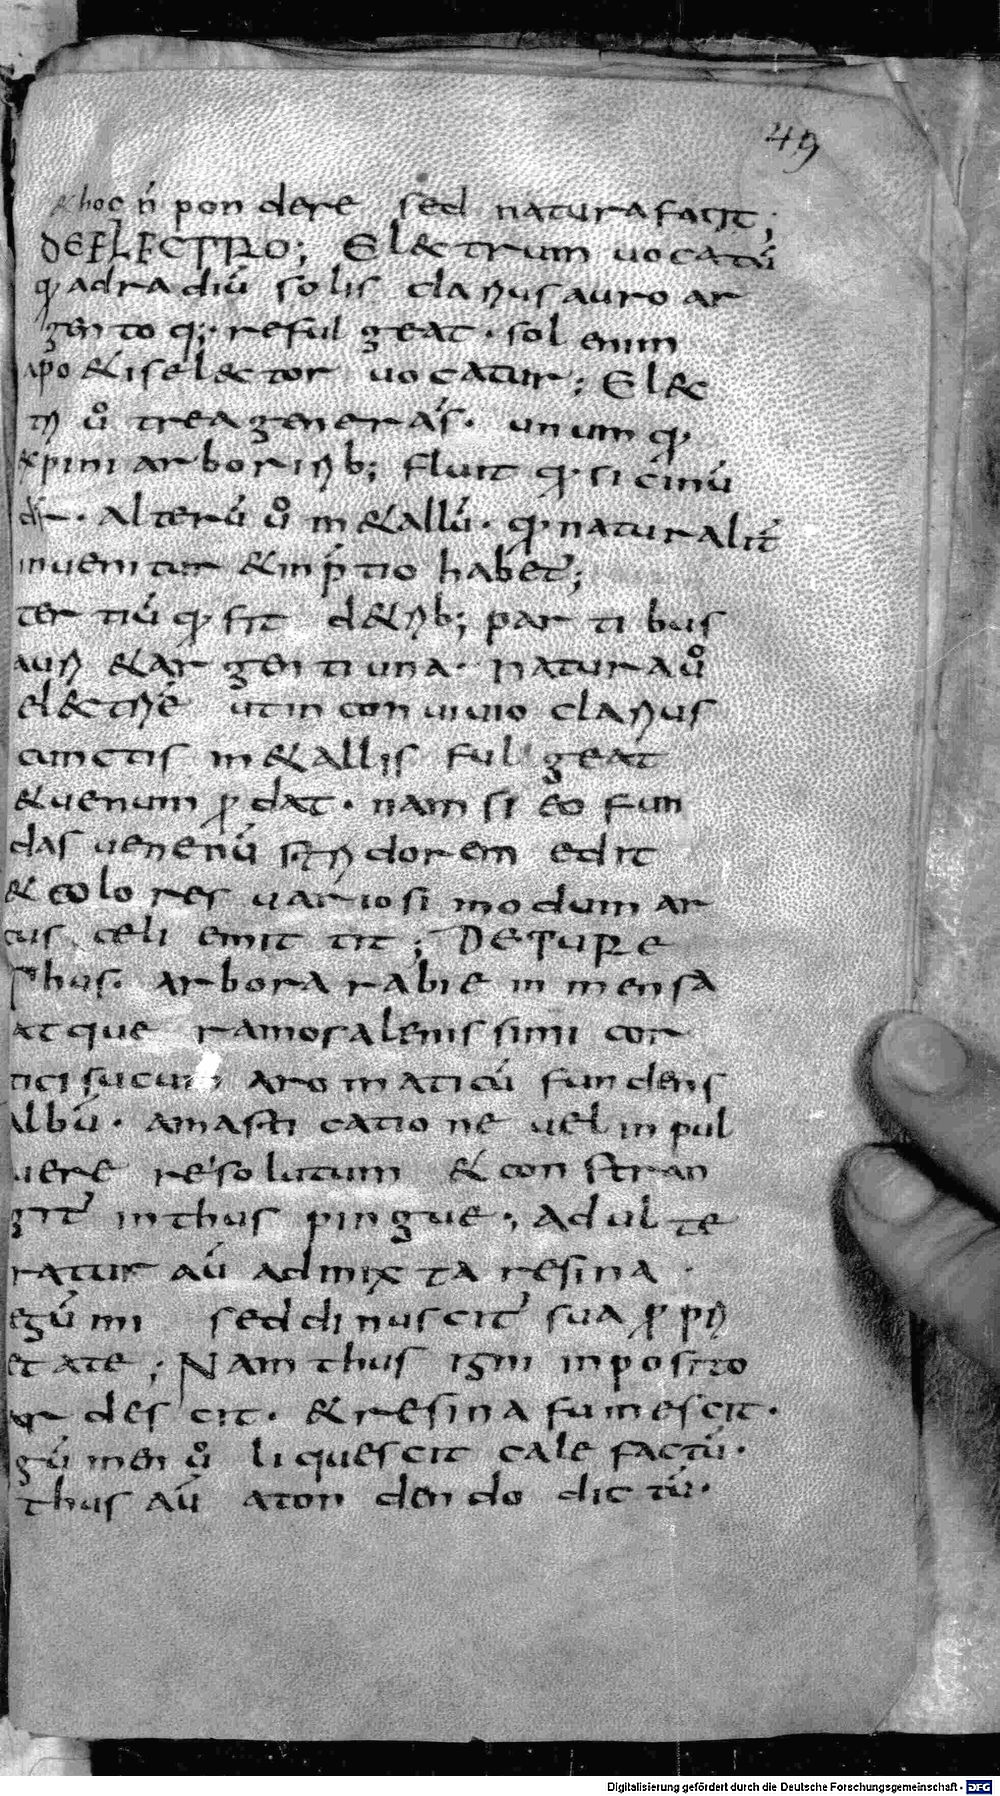 49
& hoc n̄ pondere sed natura facit;
DE ELECTRO; El&ctrum uocatū
qd̄ ad radiū solis clarius auro ar
gento q;· refulgeat· sol enim
apo&is elector uocatur; El&c
tri ū̊ trea genera s̄· unum qd̄
ex pini arborib; fluit qd̄ sicinū
dr̄· alterū ū̊ m&allū· qd̄ naturalit̄
inuenitur & in p̄tio habet̄;
tertiū qd̄ fit de trib; partibus
auri & argenti una· natura ū̊
el&ctri ē ut in conuiuio clarius
cunctis m&allis fulgeat
& uenum p̄dat· nam si eo fun
das uenenū stridorem edit
& colores uariosi modum ar
cus celi emittit; DE TURE
Thus· arbor arabie inmensa
atque ramosa lenissimi cor
tici sucum aromaticū fundens
albū· a masticatione uel in pul
uere resolutum & constran
git̄ in thus pingue; Adulte
ratur aū admixta resina·
e gūmi sed dinuscit̄ sua p̄pri
etate; Nam thus igni inposito
ardescit· & resina fumescit·
gūmen ū̊ liquescit calefactū·
thus aū a tondendo dictū·
Digitalisierung gefördert durch die Deutsche Forschungsgemeinschaft - DFG